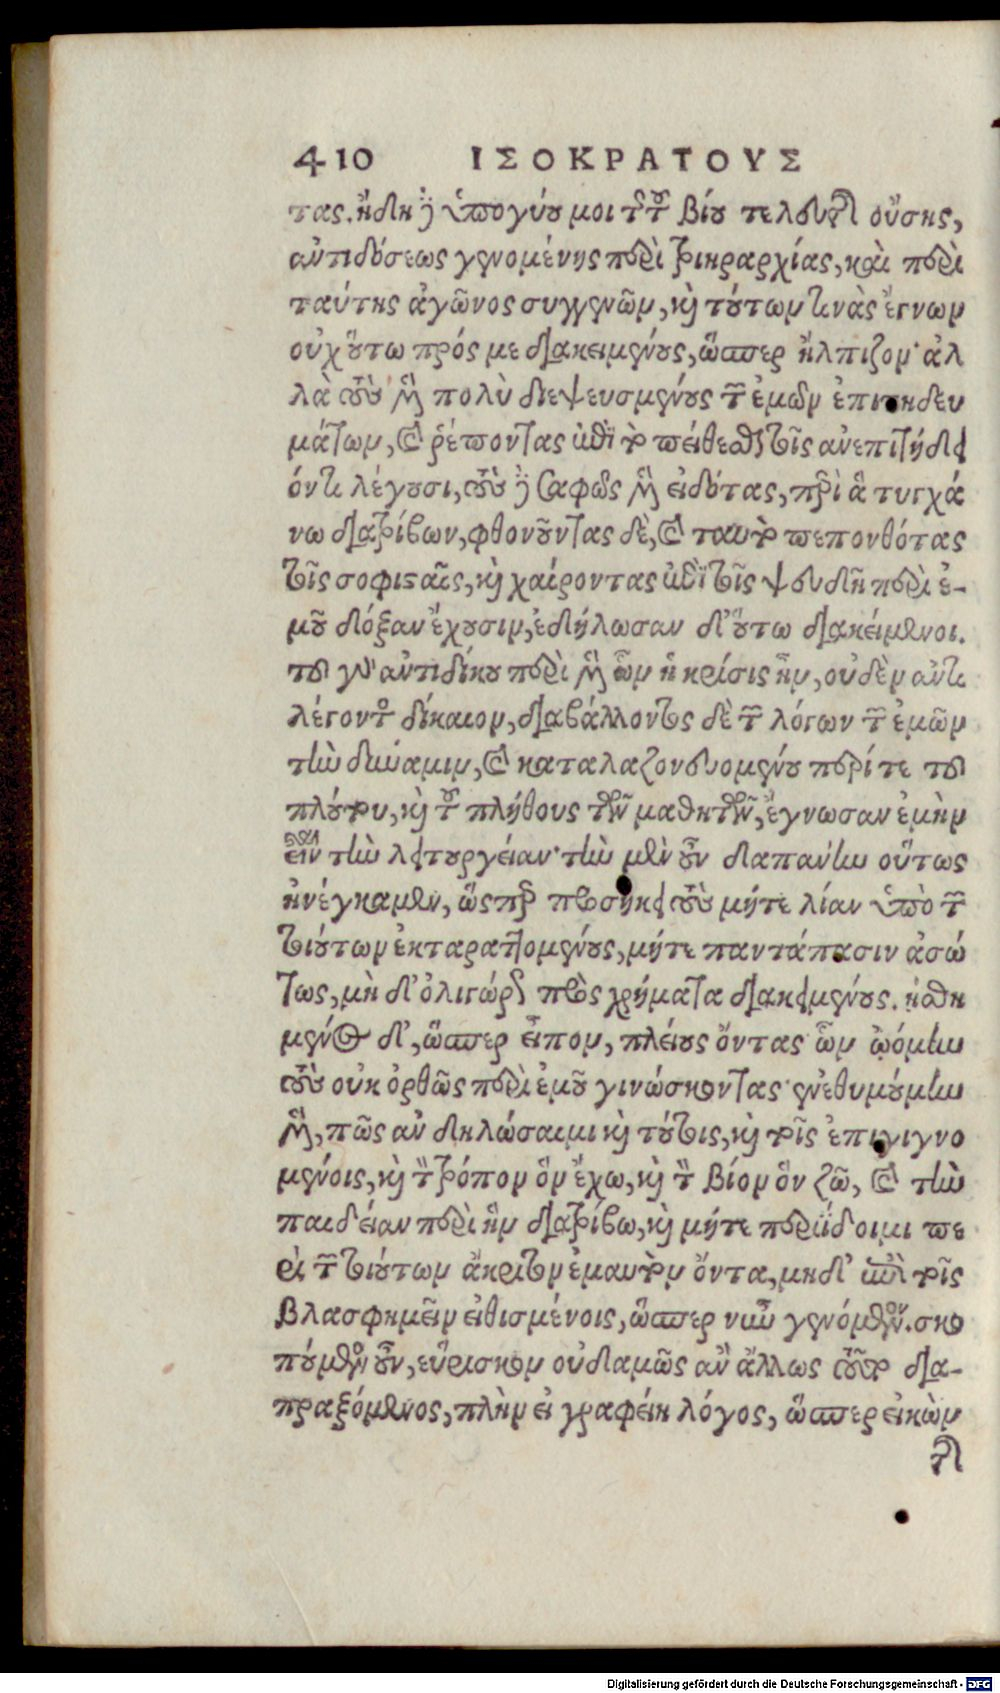 410 ΙΣΟΚΡΑΤΟΥΣ
τας. ἤδη δ' ὑπογύου μοι τῆς τοῦ βίου τελευτῆς οὔσης,
ἀντιδόσεως γενομένης περὶ τριηραρχίας, καὶ περὶ
ταύτης ἀγῶνος συγγενῶν, καὶ τούτων τινὰς ἔγνων
οὐχ οὕτω πρός με διακειμένους, ὥσπερ ἤλπιζον· ἀλ
λὰ τοὺς μὲν πολὺ διεψευσμένους τῶν ἐμῶν ἐπιτηδευ
μάτων, καὶ ῥέποντας ἐπὶ τὸ πείθεσθαι τοῖς ἀνεπιτήδει
όν τι λέγουσι, τοὺς δὲ σαφῶς μὲν εἰδότας, περὶ ἃ τυγχά
νω διατρίβων, φθονοῦντας δὲ, καὶ ταυτὸ πεπονθότας
τοῖς σοφισταῖς, καὶ χαίροντας ἐπὶ τοῖς ψευδῆ περὶ ἐ-
μοῦ δόξαν ἔχουσιν, ἐδήλωσαν δ' οὕτω διακείμενοι.
τοῦ γὰρ ἀντιδίκου περὶ μὲν ὧν ἡ κρίσις ἦν, οὐδὲν ἀντι
λέγοντος δίκαιον, διαβάλλοντος δὲ τῶν λόγων τῶν ἐμῶν
τὴν δύναμιν, καὶ καταλαζονευομένου περί τε τοῦ
πλούτου, καὶ τοῦ πλήθους τῶν μαθητῶν, ἔγνωσαν ἐμὴν
εἶναι τὴν λειτουργείαν· τὴν μὲν οὖν δαπάνην οὕτως
ἠνέγκαμεν, ὥσπερ προσήκει τοὺς μήτε λίαν ὑπὸ τῶν
τοιούτων ἐκταραττομένους, μήτε παντάπασιν ἀσώ
τως, μὴ δ' ὀλιγώρως πρὸς χρήματα διακειμένους. ᾐσθη
μένος δ', ὥσπερ εἶπον, πλείους ὄντας ὧν ᾠόμην
τοὺς οὐκ ὀρθῶς περὶ ἐμοῦ γινώσκοντας ἐνεθυμούμην
μὲν, πῶς ἂν δηλώσαιμι καὶ τούτοις, καὶ τοῖς ἐπιγιγνο
μένοις, καὶ τὸν τρόπον ὃν ἔχω, καὶ τὸν βίον ὃν ζῶ, καὶ τὴν
παιδείαν περὶ ἣν διατρίβω, καὶ μήτε περιΐδοιμι πε
ρὶ τῶν τοιούτων ἄκριτον ἐμαυτὸν ὄντα, μηδ' ἐπὶ τοῖς
βλασφημεῖν εἰθισμένοις, ὥσπερ νῦν γενόμενον. σκο
πούμενος οὖν, εὕρισκον οὐδαμῶς ἂν ἄλλως τοῦτο δια-
πραξόμενος, πλὴν εἰ γραφείη λόγος, ὥσπερ εἰκὼν
τῆς
Digitalisierung gefördert durch die Deutsche Forschungsgemeinschaft - DFG